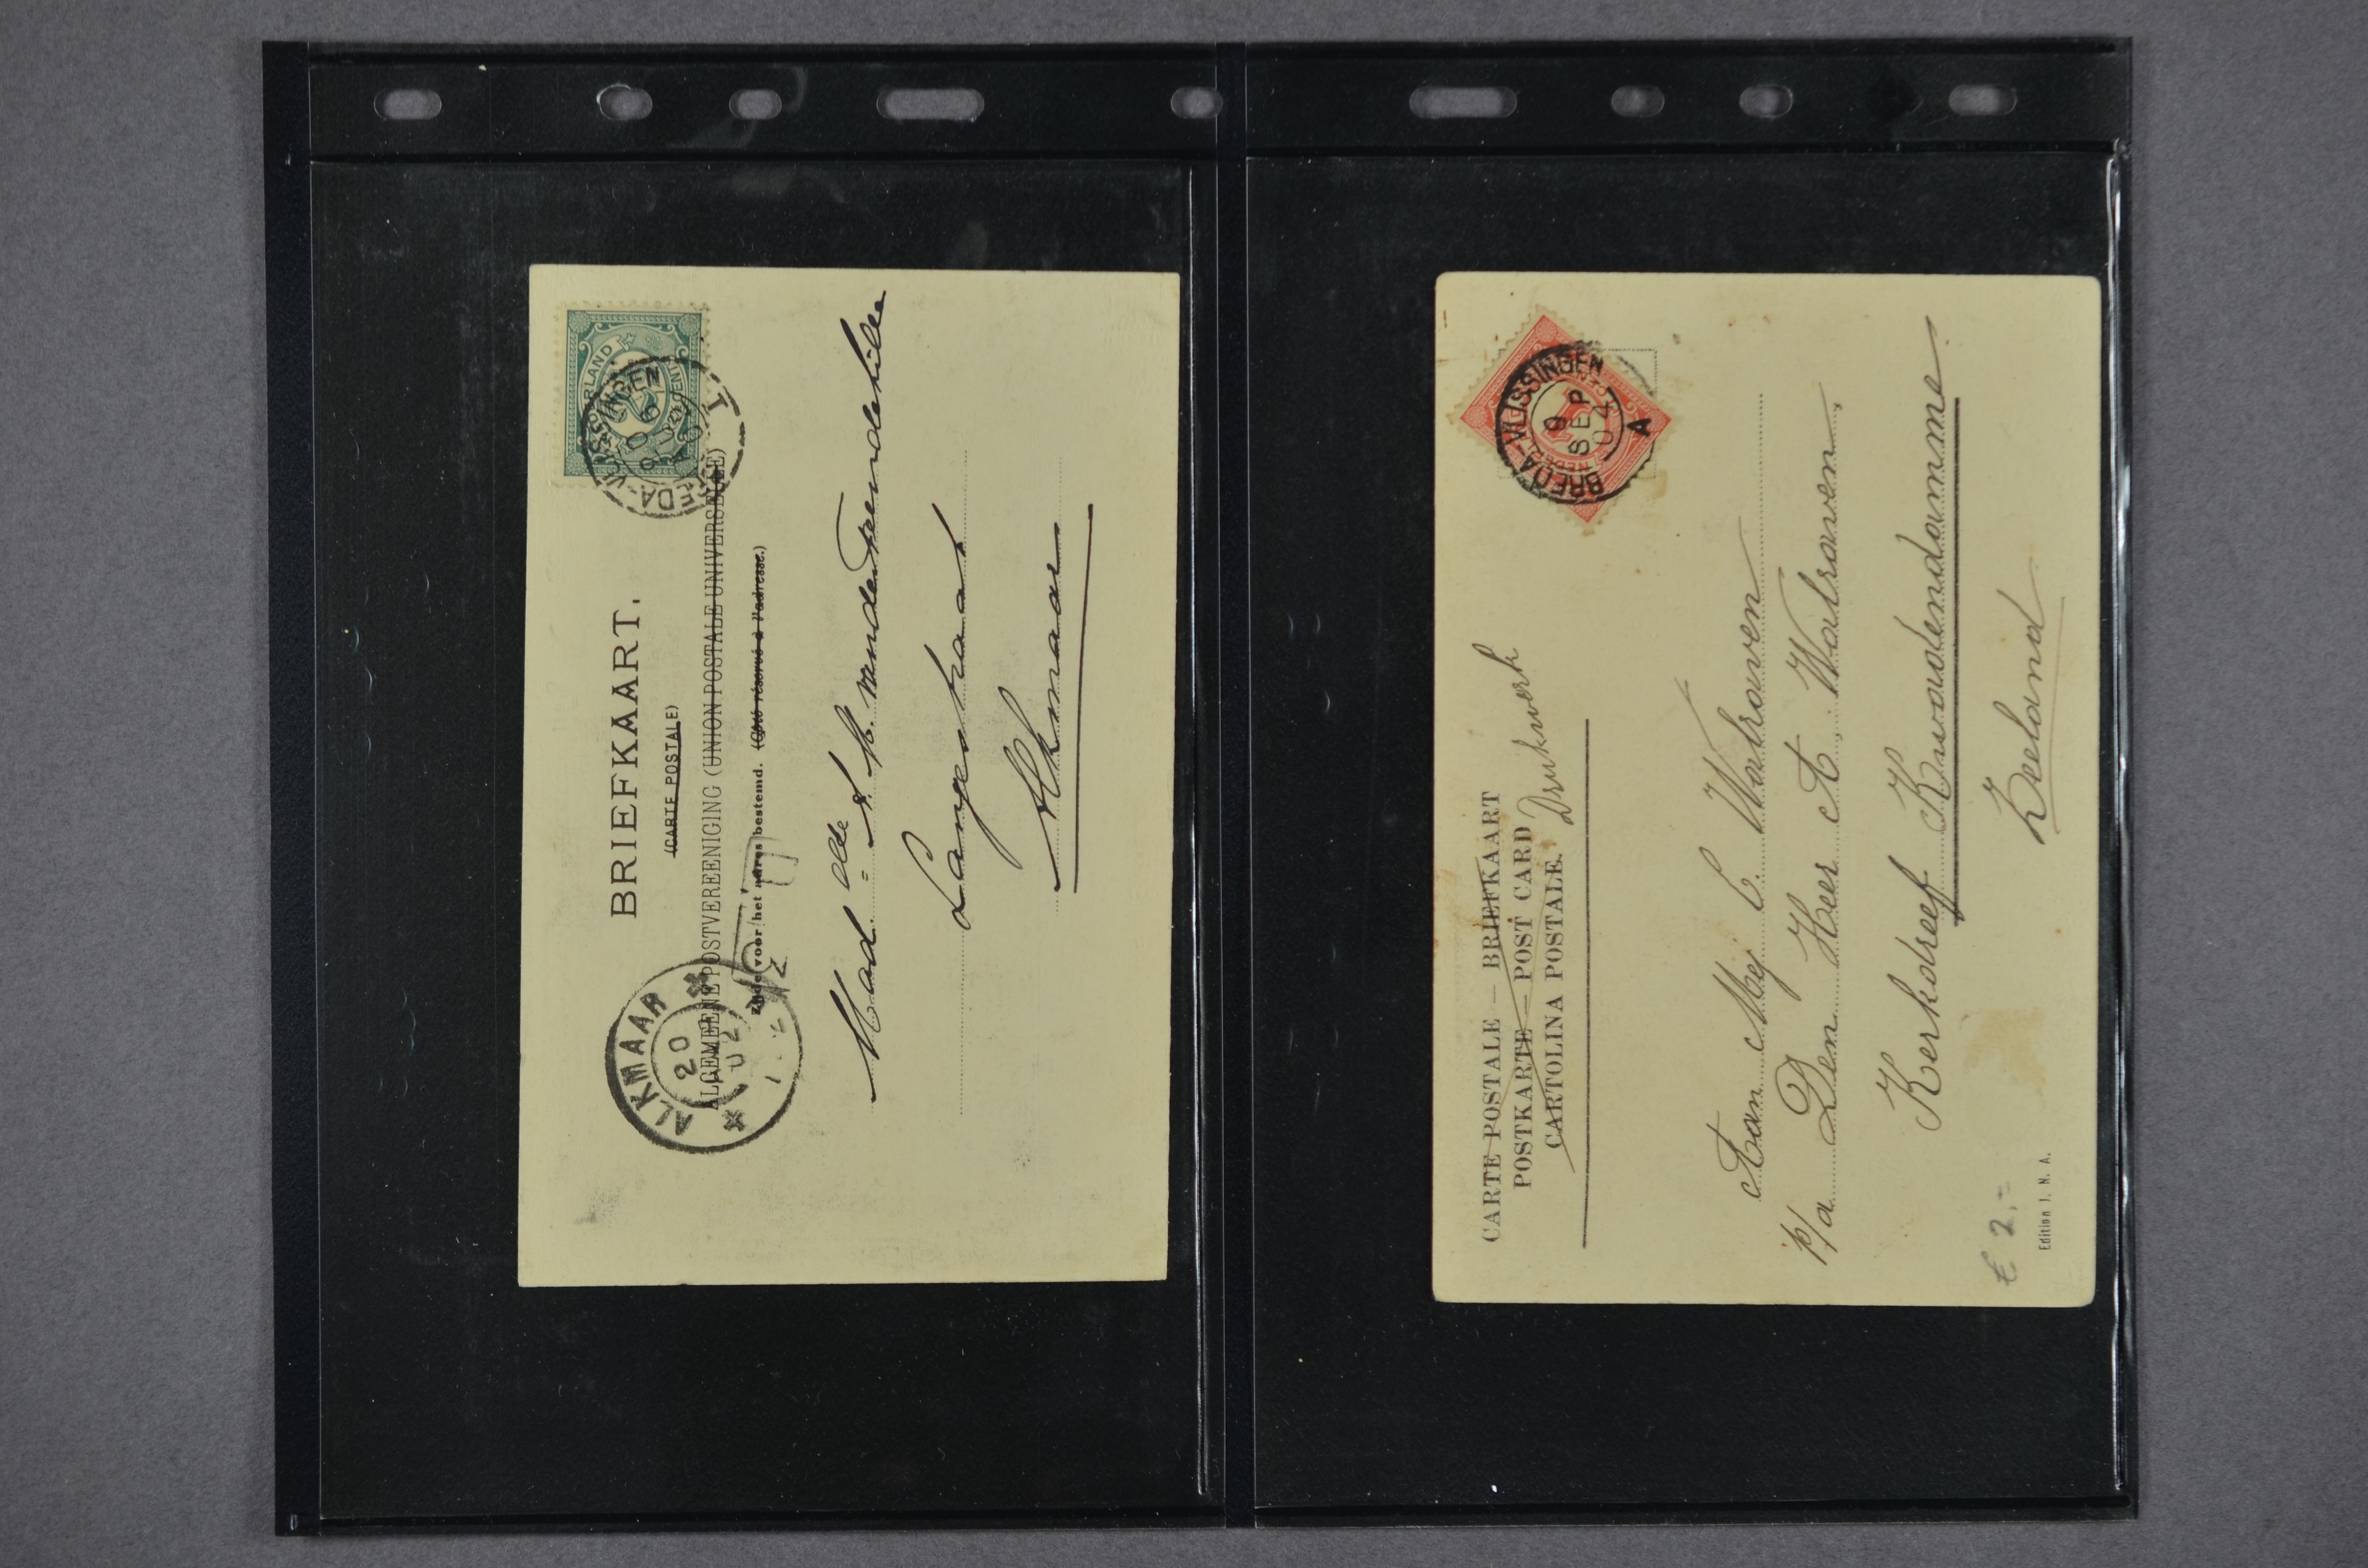 BRIEFKAART.
(CARTE POSTALE)
ALGEMEENE POSTVEREENIGING (UNION POSTALE UNIVERSELLE)
Zijde voor het adres bestemd. (Côté réservé à l'adresse.)
ALKMAAR
20
02
BREDA-VLISSINGEN
Langestraat
Alkmaar
CARTE POSTALE — BRIEFKAART
POSTKARTE — POST CARD
CARTOLINA POSTALE.
Drukwerk
BREDA-VLISSINGEN
9
SEP
04
A
Aan Mej C. Walraven
p/a Den Heer A Walraven
Kerkdreef Kwadendamme
Zeeland
€ 2,=
Edition J. N. A.